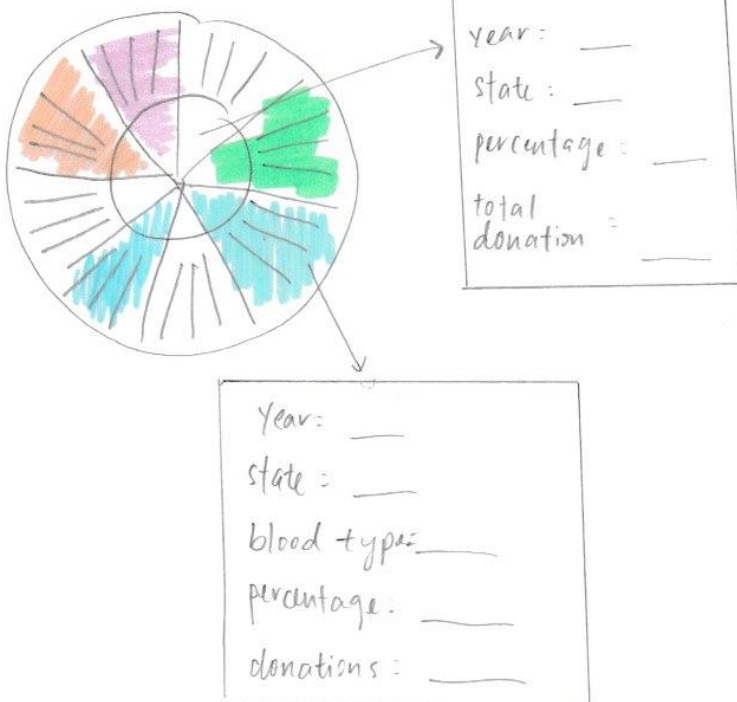 year: ___
state: ___
percentage: ___
total
donation : ___
Year: ___
state: ___
blood type: ___
percentage: ___
donations: ___